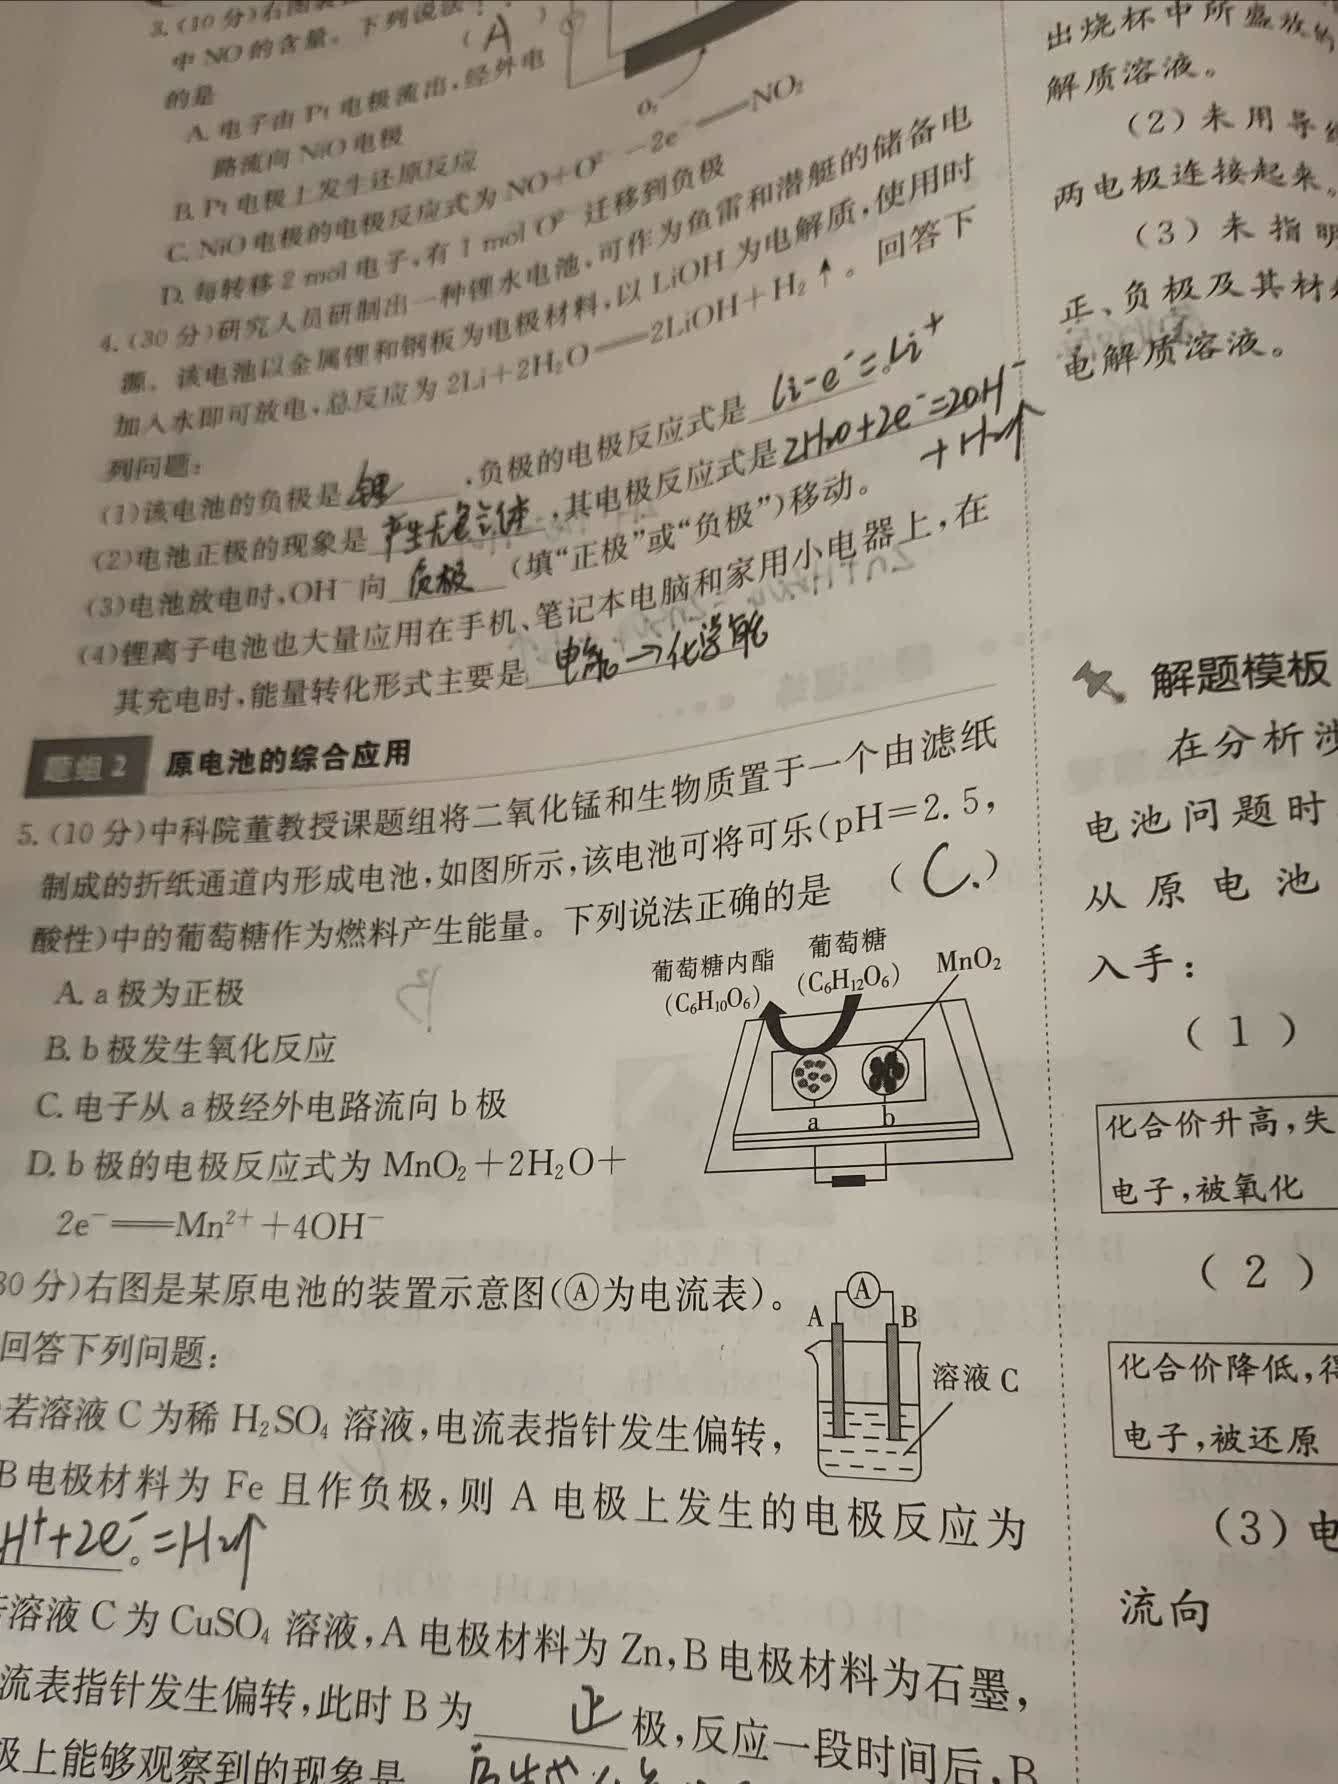 3.(10分)右图装
中NO的含量。下列说法
的是
(A)
A.电子由Pt电极流出,经外电
路流向NiO电极
B.Pt电极上发生还原反应
C.NiO电极的电极反应式为NO+O²⁻-2e⁻══NO₂
D.每转移2 mol电子,有1 mol O²⁻迁移到负极
4.(30分)研究人员研制出一种锂水电池,可作为鱼雷和潜艇的储备电
源。该电池以金属锂和钢板为电极材料,以LiOH为电解质,使用时
加入水即可放电,总反应为2Li+2H₂O══2LiOH+H₂↑。回答下
列问题:
(1)该电池的负极是锂,负极的电极反应式是Li-e⁻=Li⁺。
(2)电池正极的现象是产生无色气体,其电极反应式是2H₂O+2e⁻=2OH⁻
+H₂↑
(3)电池放电时,OH⁻向负极(填“正极”或“负极”)移动。
(4)锂离子电池也大量应用在手机、笔记本电脑和家用小电器上,在
其充电时,能量转化形式主要是电能→化学能
题组2 原电池的综合应用
5.(10分)中科院董教授课题组将二氧化锰和生物质置于一个由滤纸
制成的折纸通道内形成电池,如图所示,该电池可将可乐(pH=2.5,
酸性)中的葡萄糖作为燃料产生能量。下列说法正确的是 (C.)
A.a极为正极
B.b极发生氧化反应
C.电子从a极经外电路流向b极
D.b极的电极反应式为MnO₂+2H₂O+
2e⁻══Mn²⁺+4OH⁻
葡萄糖内酯
(C₆H₁₀O₆)
葡萄糖
(C₆H₁₂O₆)
MnO₂
a b
30分)右图是某原电池的装置示意图(Ⓐ为电流表)。
回答下列问题:
若溶液C为稀H₂SO₄溶液,电流表指针发生偏转,
B电极材料为Fe且作负极,则A电极上发生的电极反应为
H⁺+2e⁻=H₂↑。
A Ⓐ B
溶液C
溶液C为CuSO₄溶液,A电极材料为Zn,B电极材料为石墨,
流表指针发生偏转,此时B为正极,反应一段时间后,B
极上能够观察到的现象是
出烧杯中所盛放的
解质溶液。
(2)未用导线
两电极连接起来。
(3)未指明
正、负极及其材料
电解质溶液。
解题模板
在分析涉
电池问题时
从原电池
入手:
(1)
化合价升高,失
电子,被氧化
(2)
化合价降低,得
电子,被还原
(3)电
流向